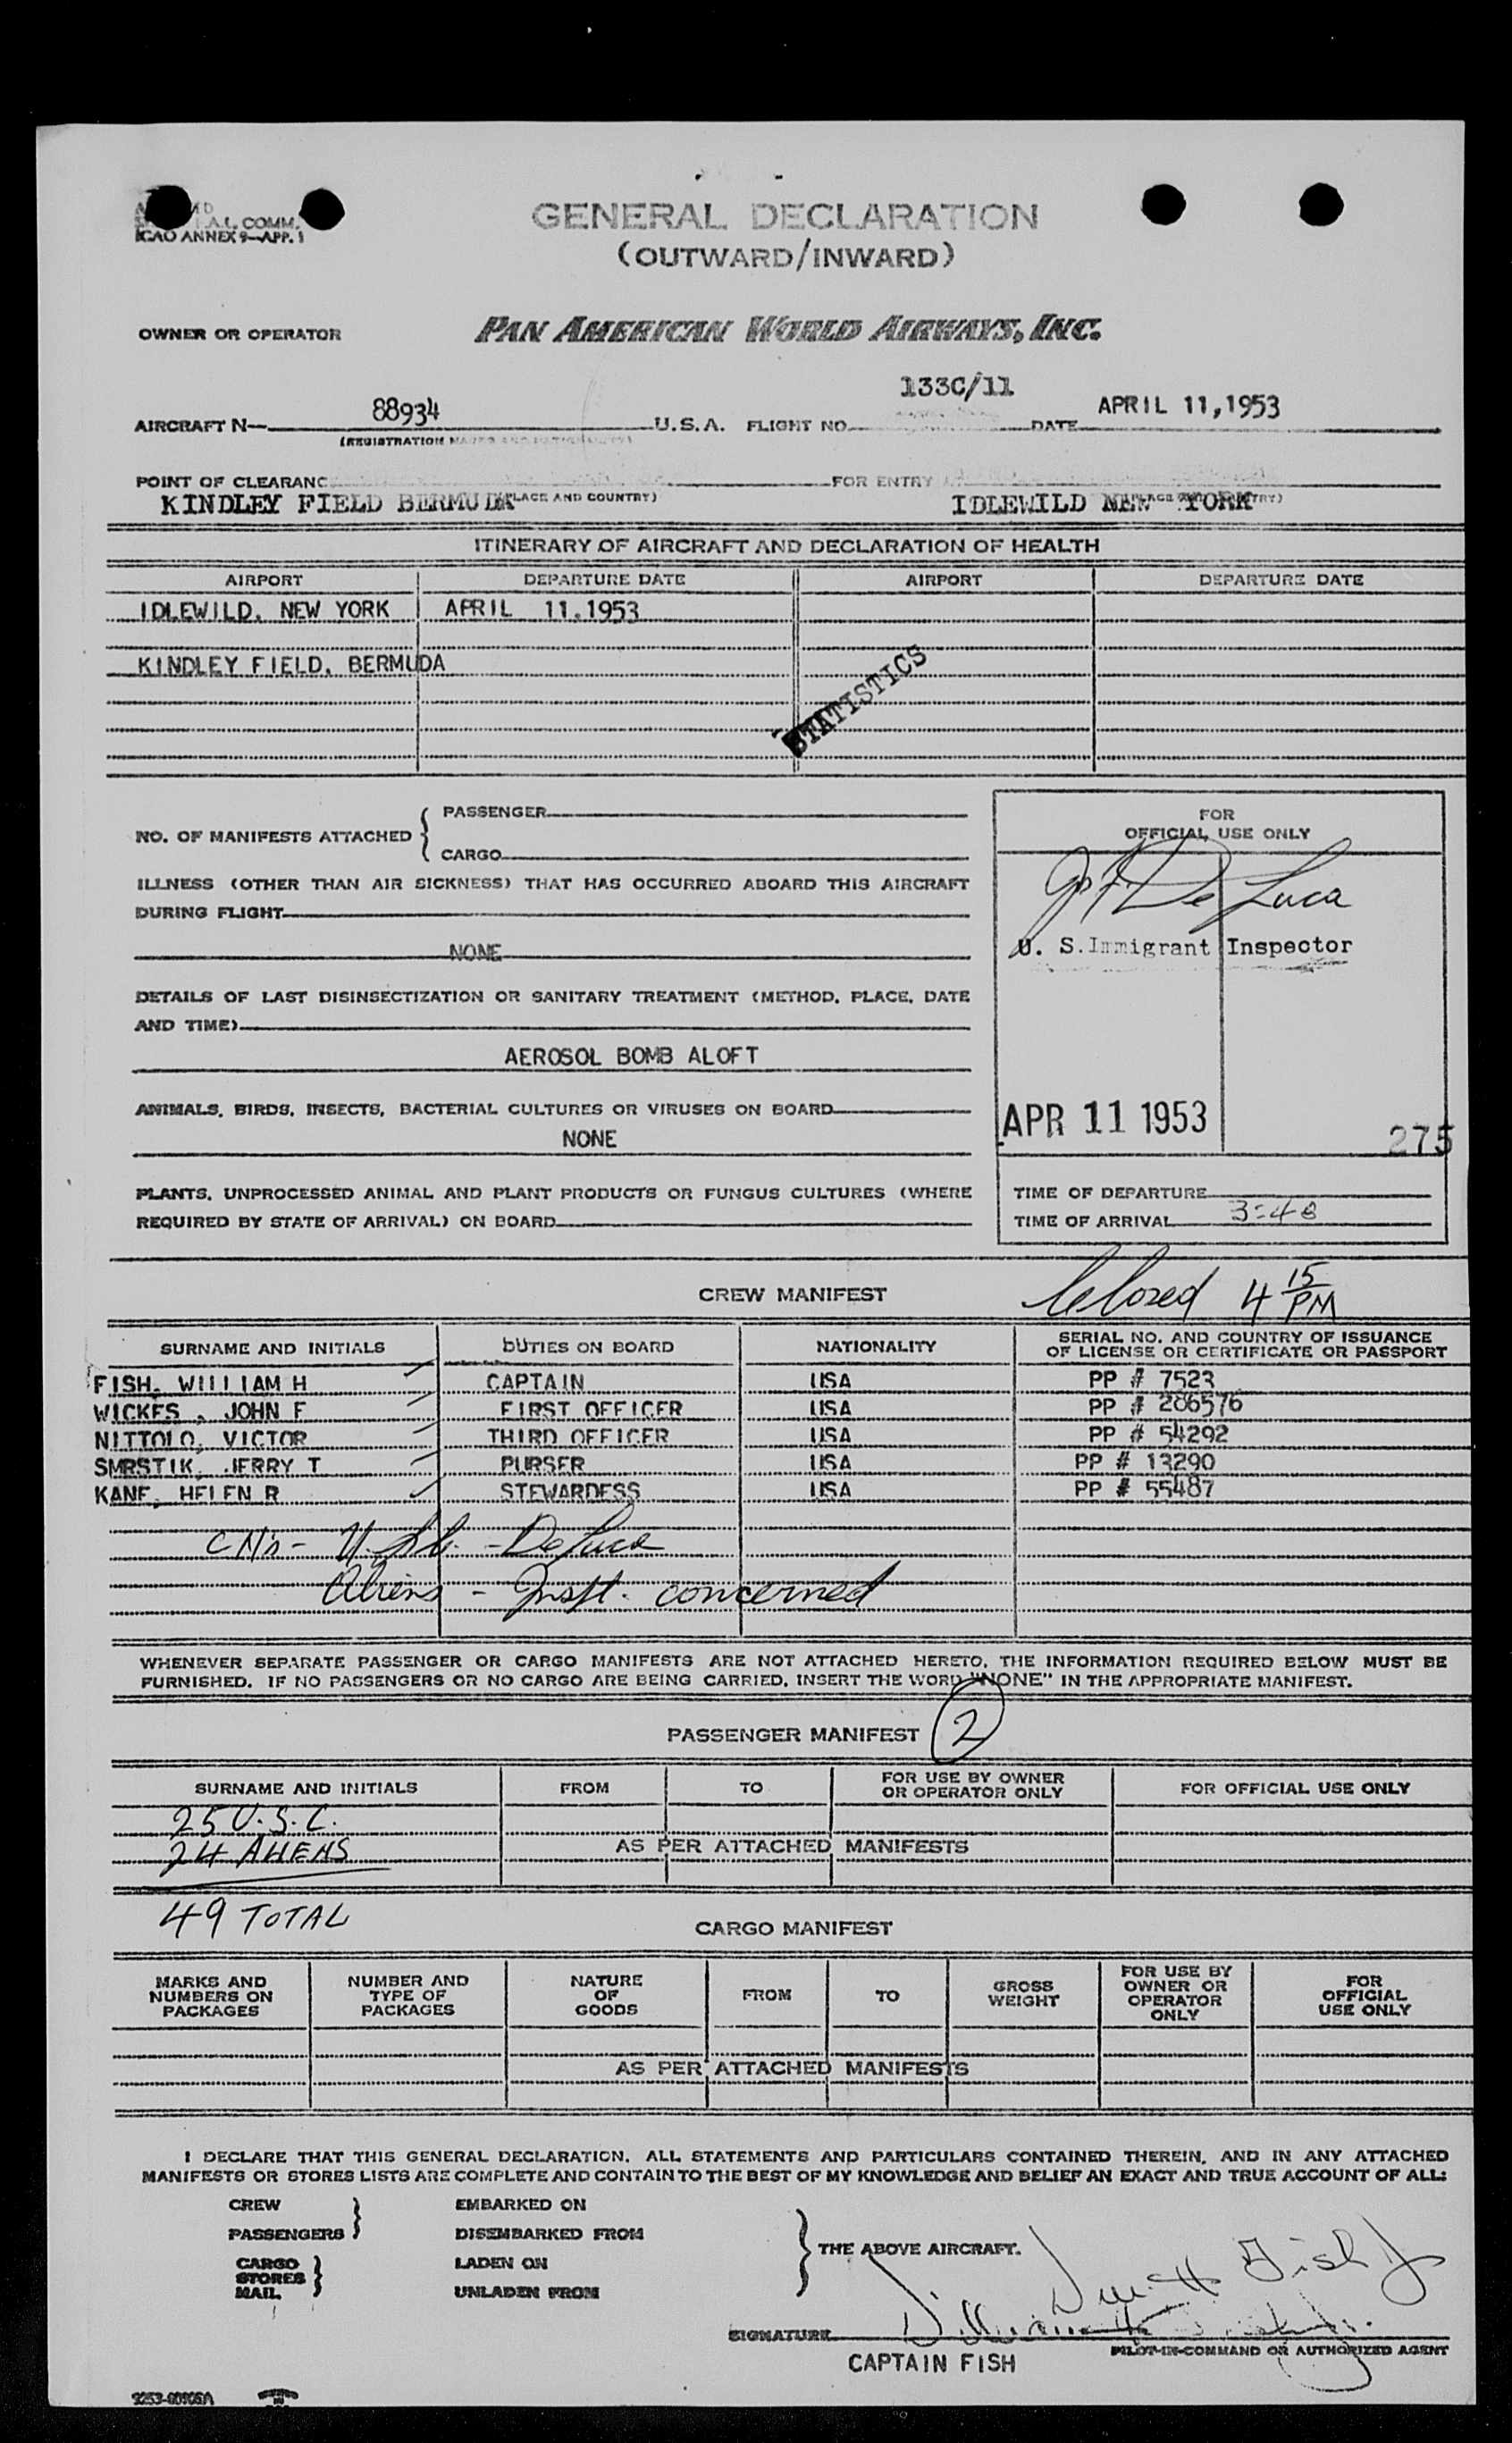 A.I. COMM.
ICAO ANNEX 9—APP. 1
GENERAL DECLARATION
(OUTWARD/INWARD)
OWNER OR OPERATOR PAN AMERICAN WORLD AIRWAYS, INC.
133C/11
AIRCRAFT N— 88934 U.S.A. FLIGHT NO. DATE APRIL 11,1953
(REGISTRATION MARKS AND NATIONALITY)
POINT OF CLEARANC FOR ENTRY
KINDLEY FIELD BERMUDA (PLACE AND COUNTRY) IDLEWILD NEW YORK (PLACE AND COUNTRY)
ITINERARY OF AIRCRAFT AND DECLARATION OF HEALTH
AIRPORT DEPARTURE DATE AIRPORT DEPARTURE DATE
IDLEWILD, NEW YORK APRIL 11,1953
KINDLEY FIELD, BERMUDA
STATISTICS
NO. OF MANIFESTS ATTACHED { PASSENGER
CARGO
FOR
OFFICIAL USE ONLY
ILLNESS (OTHER THAN AIR SICKNESS) THAT HAS OCCURRED ABOARD THIS AIRCRAFT
DURING FLIGHT
De Luca
NONE
U. S. Immigrant Inspector
DETAILS OF LAST DISINSECTIZATION OR SANITARY TREATMENT (METHOD, PLACE, DATE
AND TIME)
AEROSOL BOMB ALOFT
ANIMALS, BIRDS, INSECTS, BACTERIAL CULTURES OR VIRUSES ON BOARD
NONE
APR 11 1953
275
PLANTS, UNPROCESSED ANIMAL AND PLANT PRODUCTS OR FUNGUS CULTURES (WHERE
REQUIRED BY STATE OF ARRIVAL) ON BOARD
TIME OF DEPARTURE
TIME OF ARRIVAL 3:48
CREW MANIFEST
Closed 4 15 PM
SURNAME AND INITIALS DUTIES ON BOARD NATIONALITY SERIAL NO. AND COUNTRY OF ISSUANCE
OF LICENSE OR CERTIFICATE OR PASSPORT
FISH, WILLIAM H CAPTAIN USA PP # 7523
WICKES , JOHN F FIRST OFFICER USA PP # 286576
NITTOLO, VICTOR THIRD OFFICER USA PP # 54292
SMRSTIK, JERRY T PURSER USA PP # 13290
KANE, HELEN R STEWARDESS USA PP # 55487
De Luca
Aliens - Inspt. concerned
WHENEVER SEPARATE PASSENGER OR CARGO MANIFESTS ARE NOT ATTACHED HERETO, THE INFORMATION REQUIRED BELOW MUST BE
FURNISHED. IF NO PASSENGERS OR NO CARGO ARE BEING CARRIED, INSERT THE WORD "NONE" IN THE APPROPRIATE MANIFEST.
PASSENGER MANIFEST 2
SURNAME AND INITIALS FROM TO FOR USE BY OWNER
OR OPERATOR ONLY FOR OFFICIAL USE ONLY
25 U.S.C.
24 ALIENS AS PER ATTACHED MANIFESTS
49 TOTAL
CARGO MANIFEST
MARKS AND
NUMBERS ON
PACKAGES
NUMBER AND
TYPE OF
PACKAGES
NATURE
OF
GOODS
FROM
TO
GROSS
WEIGHT
FOR USE BY
OWNER OR
OPERATOR
ONLY
FOR
OFFICIAL
USE ONLY
AS PER ATTACHED MANIFESTS
I DECLARE THAT THIS GENERAL DECLARATION, ALL STATEMENTS AND PARTICULARS CONTAINED THEREIN, AND IN ANY ATTACHED
MANIFESTS OR STORES LISTS ARE COMPLETE AND CONTAIN TO THE BEST OF MY KNOWLEDGE AND BELIEF AN EXACT AND TRUE ACCOUNT OF ALL:
CREW EMBARKED ON
PASSENGERS DISEMBARKED FROM
THE ABOVE AIRCRAFT.
CARGO LADEN ON
STORES
MAIL UNLADEN FROM
SIGNATURE
PILOT-IN-COMMAND OR AUTHORIZED AGENT
CAPTAIN FISH